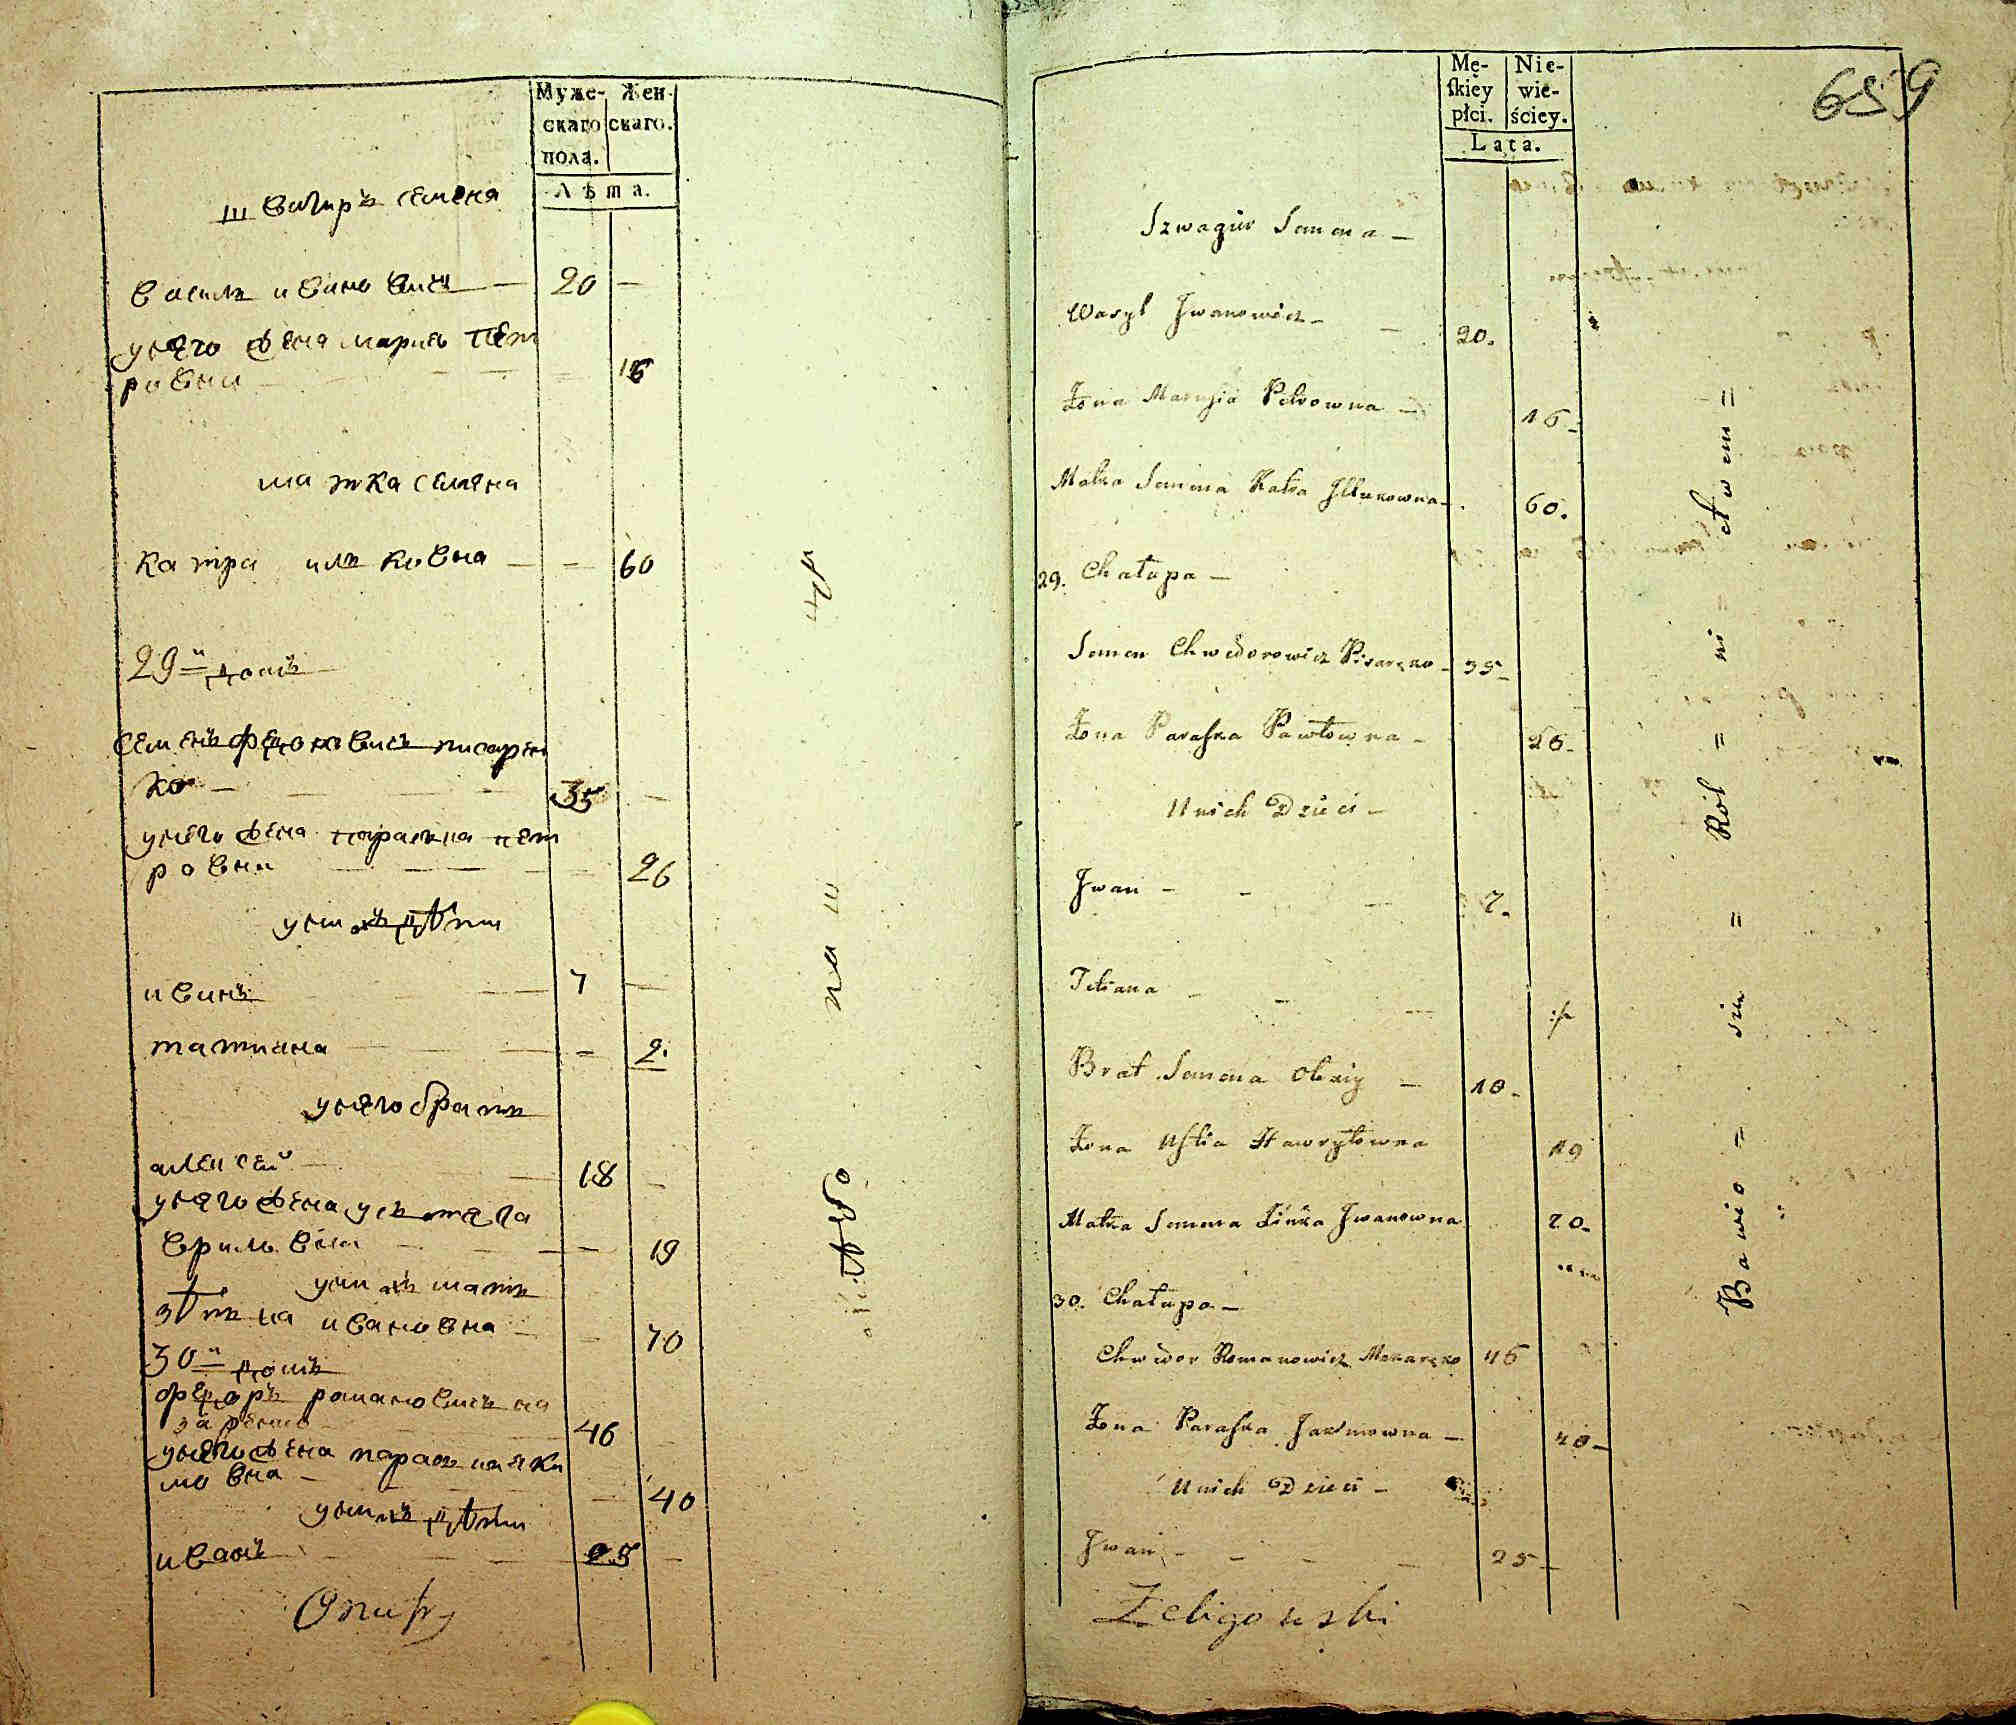 Муже- Жен-
скаго скаго.
пола.
Лѣта.
Швагиръ семена
василь ивановичъ — 20 —
унего жена мария пет
ровна 16
матка семена
катра илковна — — 60
29й домъ
семенъ федоровичъ писарен
ко — 35 —
унего жена параска пет
ровна 26
унихъ дѣти
иванъ 7 —
татиана — 2.
унего братъ
алексей 18 —
унего жена устя га
врилъвна — 19
унихъ мать
зѣнка ивановна — 70
30й домъ
федоръ романовичъ на
заренко 46
унего жена параска яки
мовна — 40
унихъ дѣти
иванъ 25 —
Onufry
659
Mę- Nie-
skiey wie-
płci. ściey.
Lata.
Szwagier Semena —
Wasyl Jwanowicz — 20.
Żona Maryia Petrowna — 16
Matka Semena Katra Jlkowna — 60.
29. Chałupa —
Semen Chwedorowicz Pisaręko — 35
Żona Paraska Pawłowna — 26
U nich Dzieci —
Jwan — 7.
Tetiana
Brat Semena Olexiy — 18
Żona Ustia Hawryłowna 19
Matka Semena Zińka Jwanowna 70
30. Chałupa —
Chwedor Romanowicz Nazaręko 46
Żona Paraska Jakimowna — 40
U nich Dzieci —
Jwan — 25
Zeligowski
Bawio = sie = Rol = ni = ctwem =